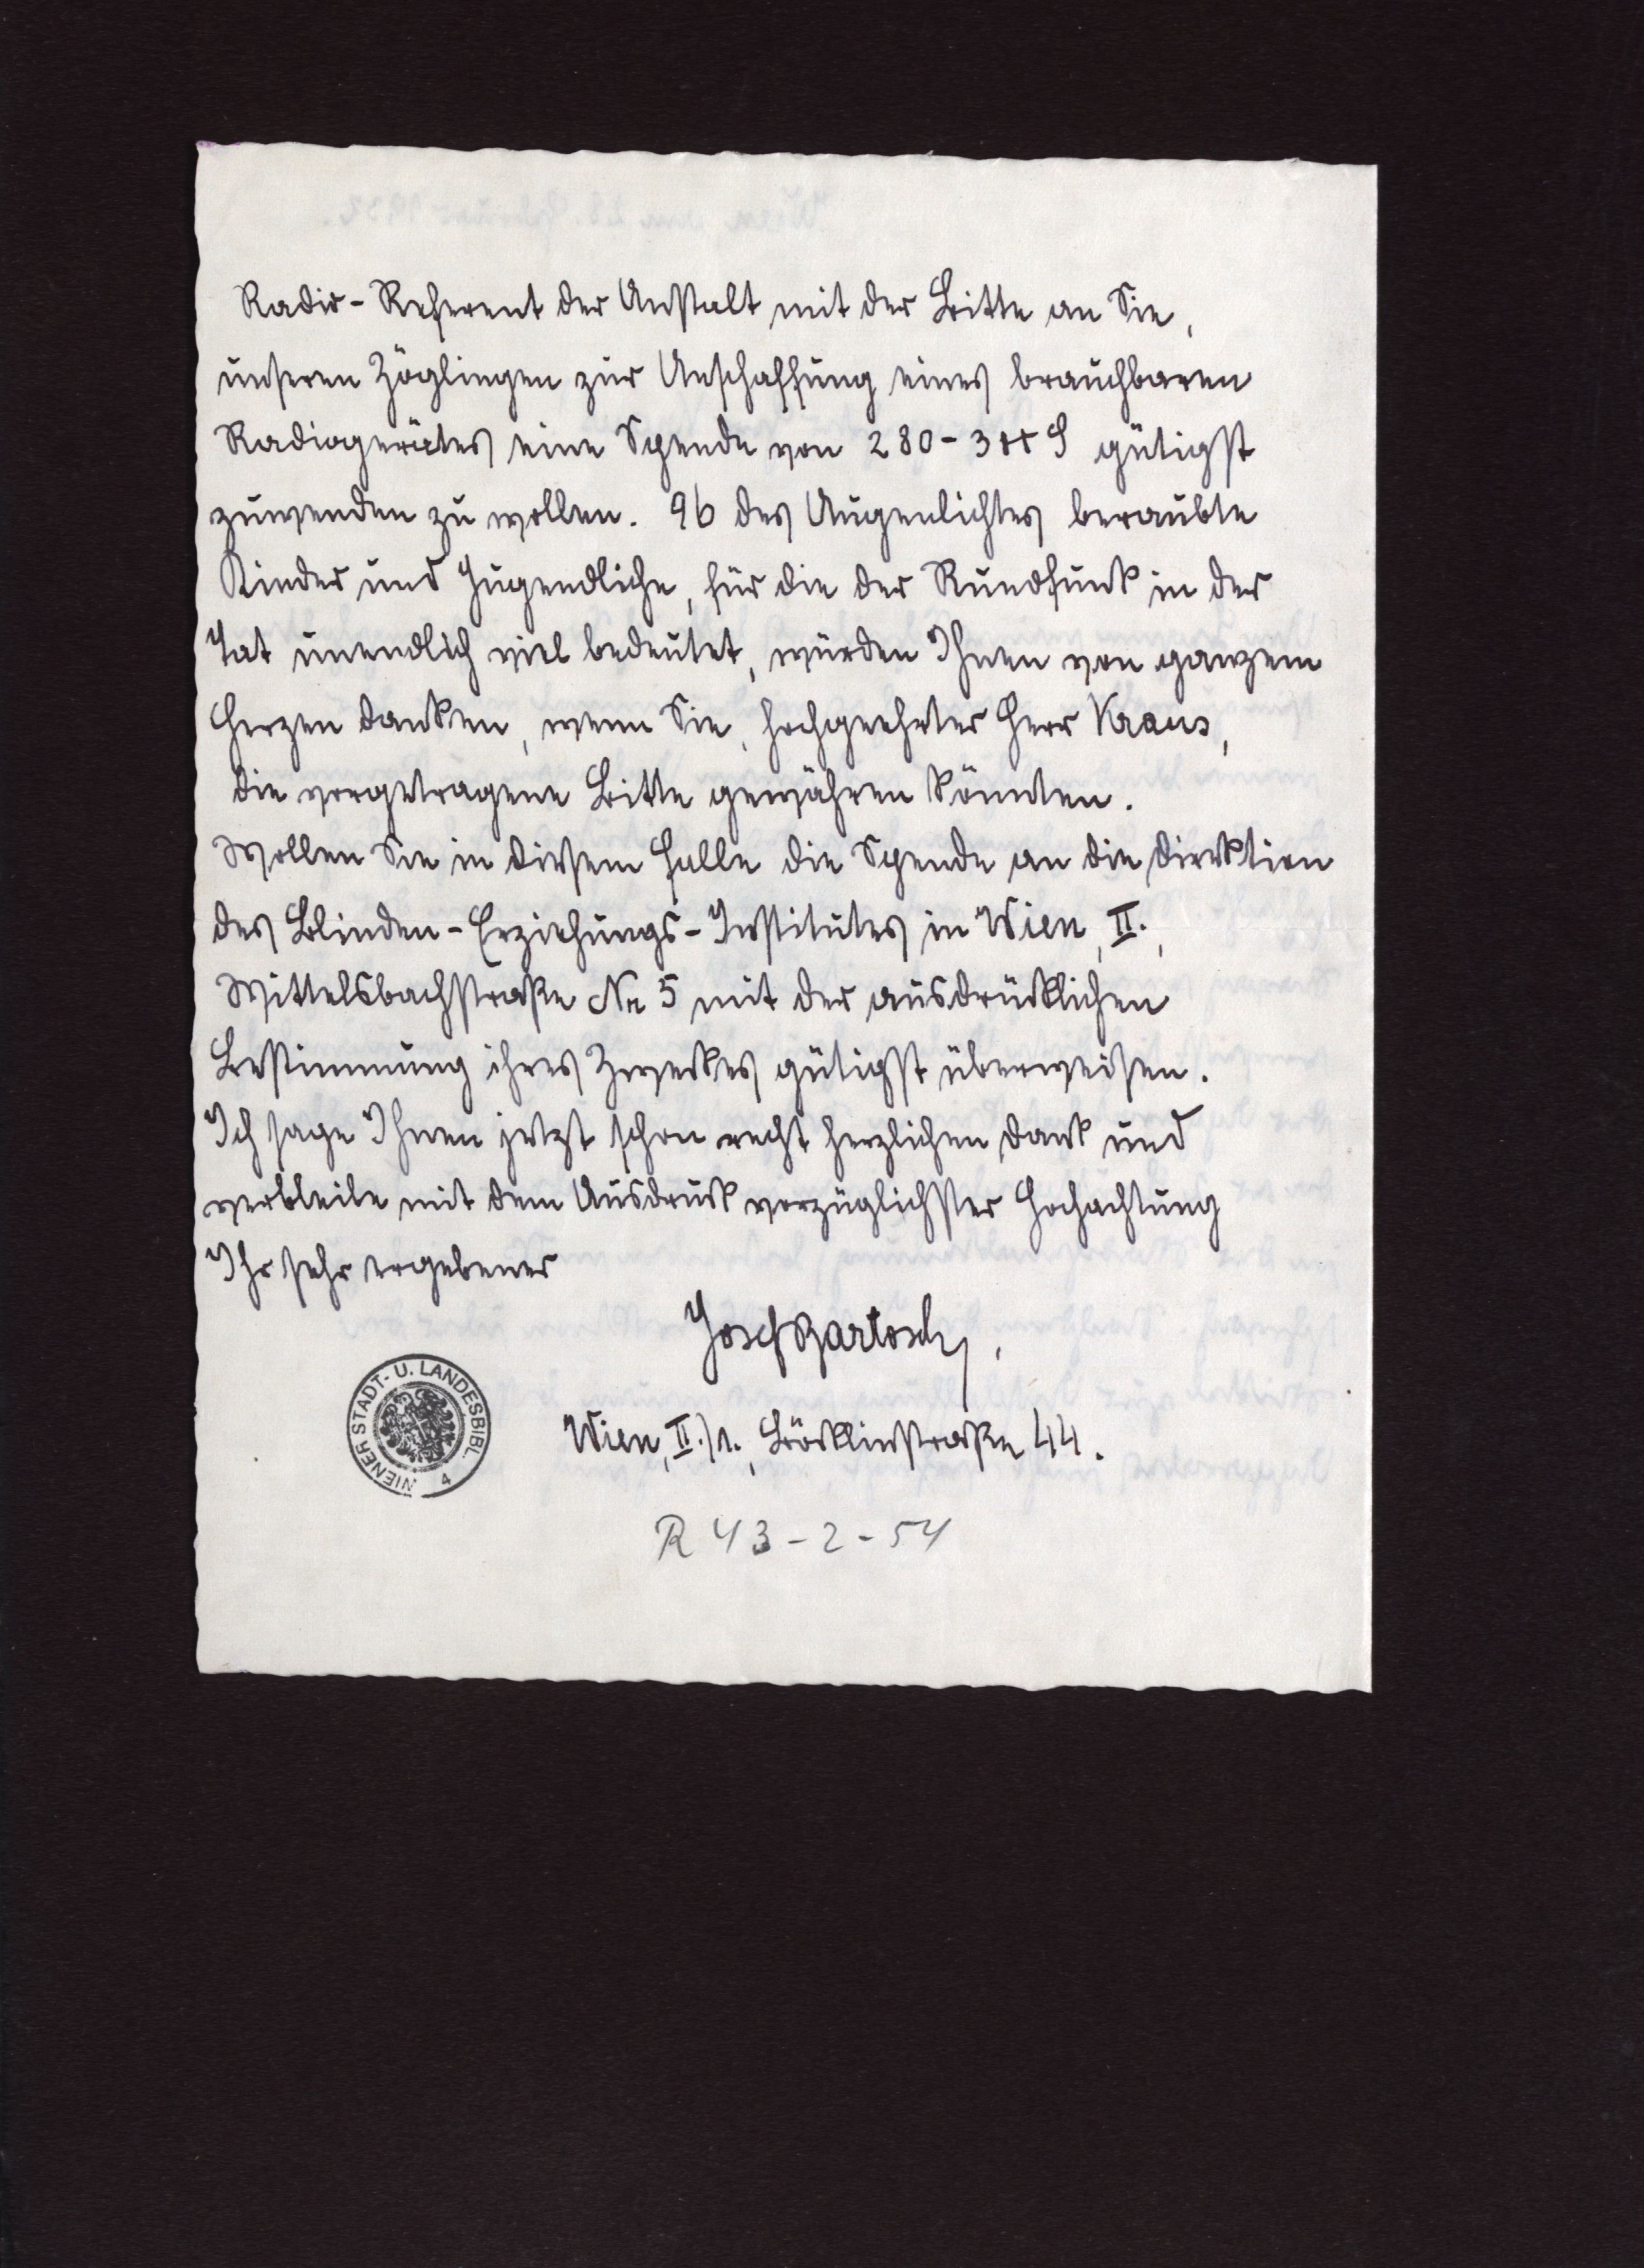 Radio-Referent der Anstalt mit der Bitte an Sie,
unseren Zöglingen zur Anschaffung eines brauchbaren
Radiogerätes eine Spende von 280-300 S gütigst
zuwenden zu wollen. 96 des Augenlichtes beraubte
Kinder und Jugendliche, für die der Rundfunk in der
Tat unendlich viel bedeutet, würden Ihnen von ganzem
Herzen danken, wenn Sie, hochgeehrter Herr Kraus,
die vorgetragene Bitte gewähren könnten.
Wollen Sie in diesem Falle die Spende an die Direktion
des Blinden-Erziehungs-Institutes in Wien, II.,
Wittelsbachstraße No 5 mit der ausdrücklichen
Bestimmung ihres Zweckes gütigst überweisen.
Ich sage Ihnen jetzt schon recht herzlichen Dank und
verbleibe mit dem Ausdruck vorzüglichster Hochachtung
Ihr sehr ergebener
Josef Bartosch,
WIENER STADT- U. LANDESBIBL. 4
Wien, II./1., Böcklinstraße 44.
R 43-2-54